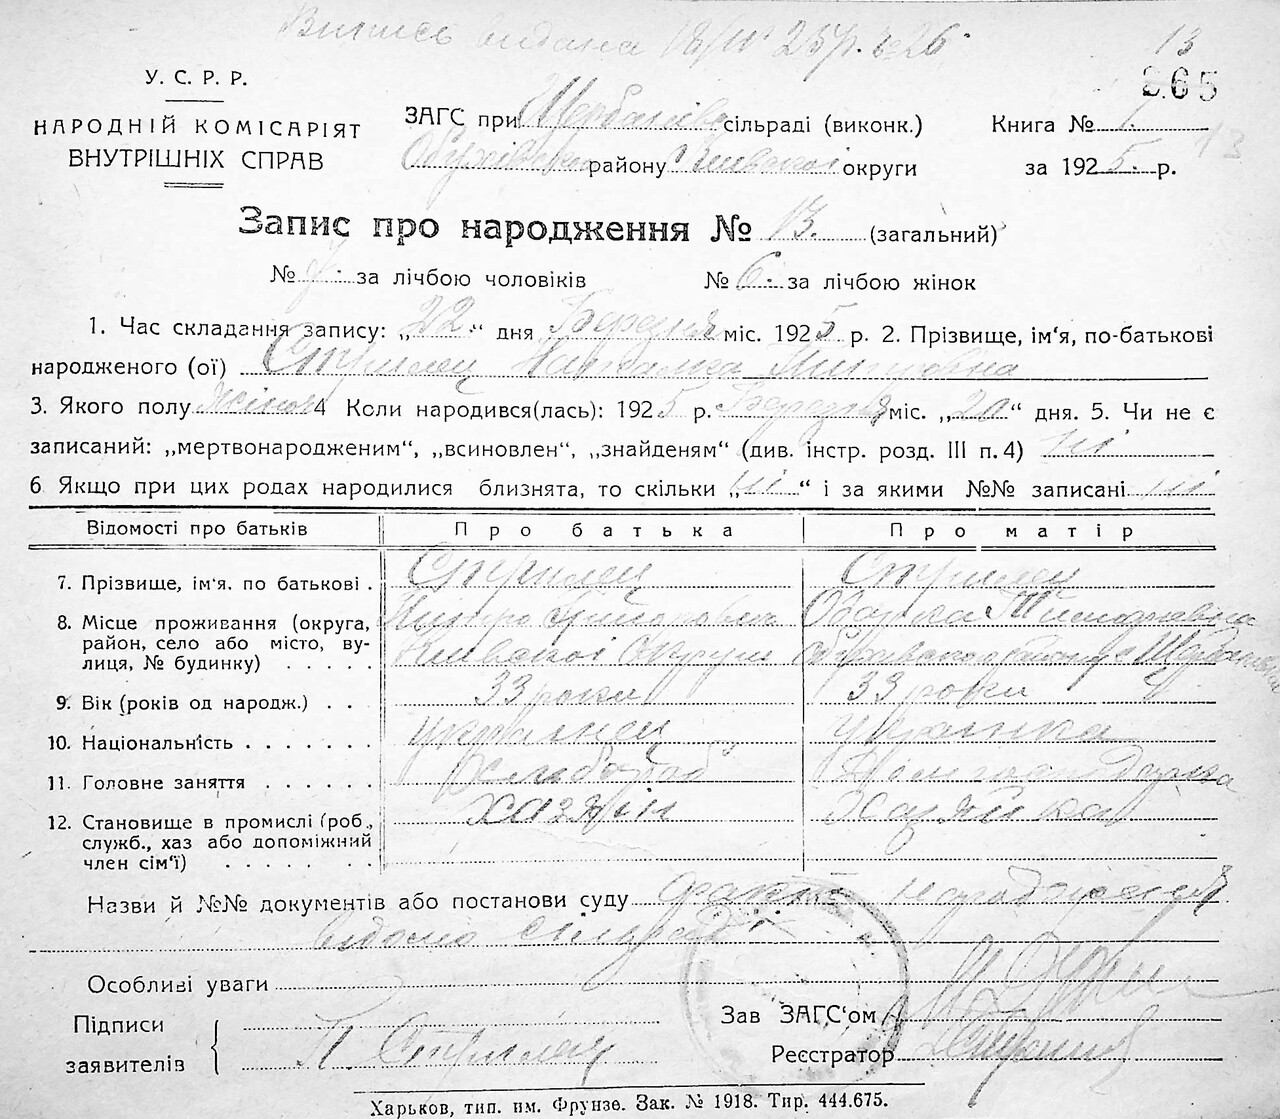 Випись видана 18/IV 25р. № 26
13
265
У. С. Р. Р.
НАРОДНІЙ КОМІСАРІЯТ
ВНУТРІШНІХ СПРАВ
ЗАГС при Щербанівс сільраді (виконк.)
Обухівського району Київської округи
Книга № 1
за 1925 р.
13
Запис про народження № 13. (загальний)
№ 7 за лічбою чоловіків № 6 за лічбою жінок
1. Час складання запису: „22“ дня Березня міс. 1925 р. 2. Прізвище, ім'я, по-батькові
народженого (ої) Стрилец
3. Якого полу жіноч 4 Коли народився(лась): 1925 р. Березня міс. „20“ дня. 5. Чи не є
записаний: „мертвонародженим“, „всиновлен“, „знайденям“ (див. інстр. розд. III п. 4) ні
6 Якщо при цих родах народилися близнята, то скільки „ні“ і за якими №№ записані ні
Відомості про батьків Про батька Про матір
7. Прізвище, ім'я. по батькові . Стрилец Стрилец
8. Місце проживання (округа,
район, село або місто, ву-
лиця, № будинку) . . . . .
Київскої Округи
9. Вік (років од народж.) . . 33 роки 33 роки
10. Національність . . . . . . . українец українка
11. Головне заняття . . . . . . хлебороб
12. Становище в промислі (роб.,
служб., хаз або допоміжний
член сім'ї) . . . . . .
хазяін Хазяйка
Назви й №№ документів або постанови суду факт народження
відомо сільраді
Особливі уваги
Підписи
заявителів
П Стрилец
Зав ЗАГС'ом
Реєстратор
Харьков, тип. им. Фрунзе. Зак. № 1918. Тир. 444.675.